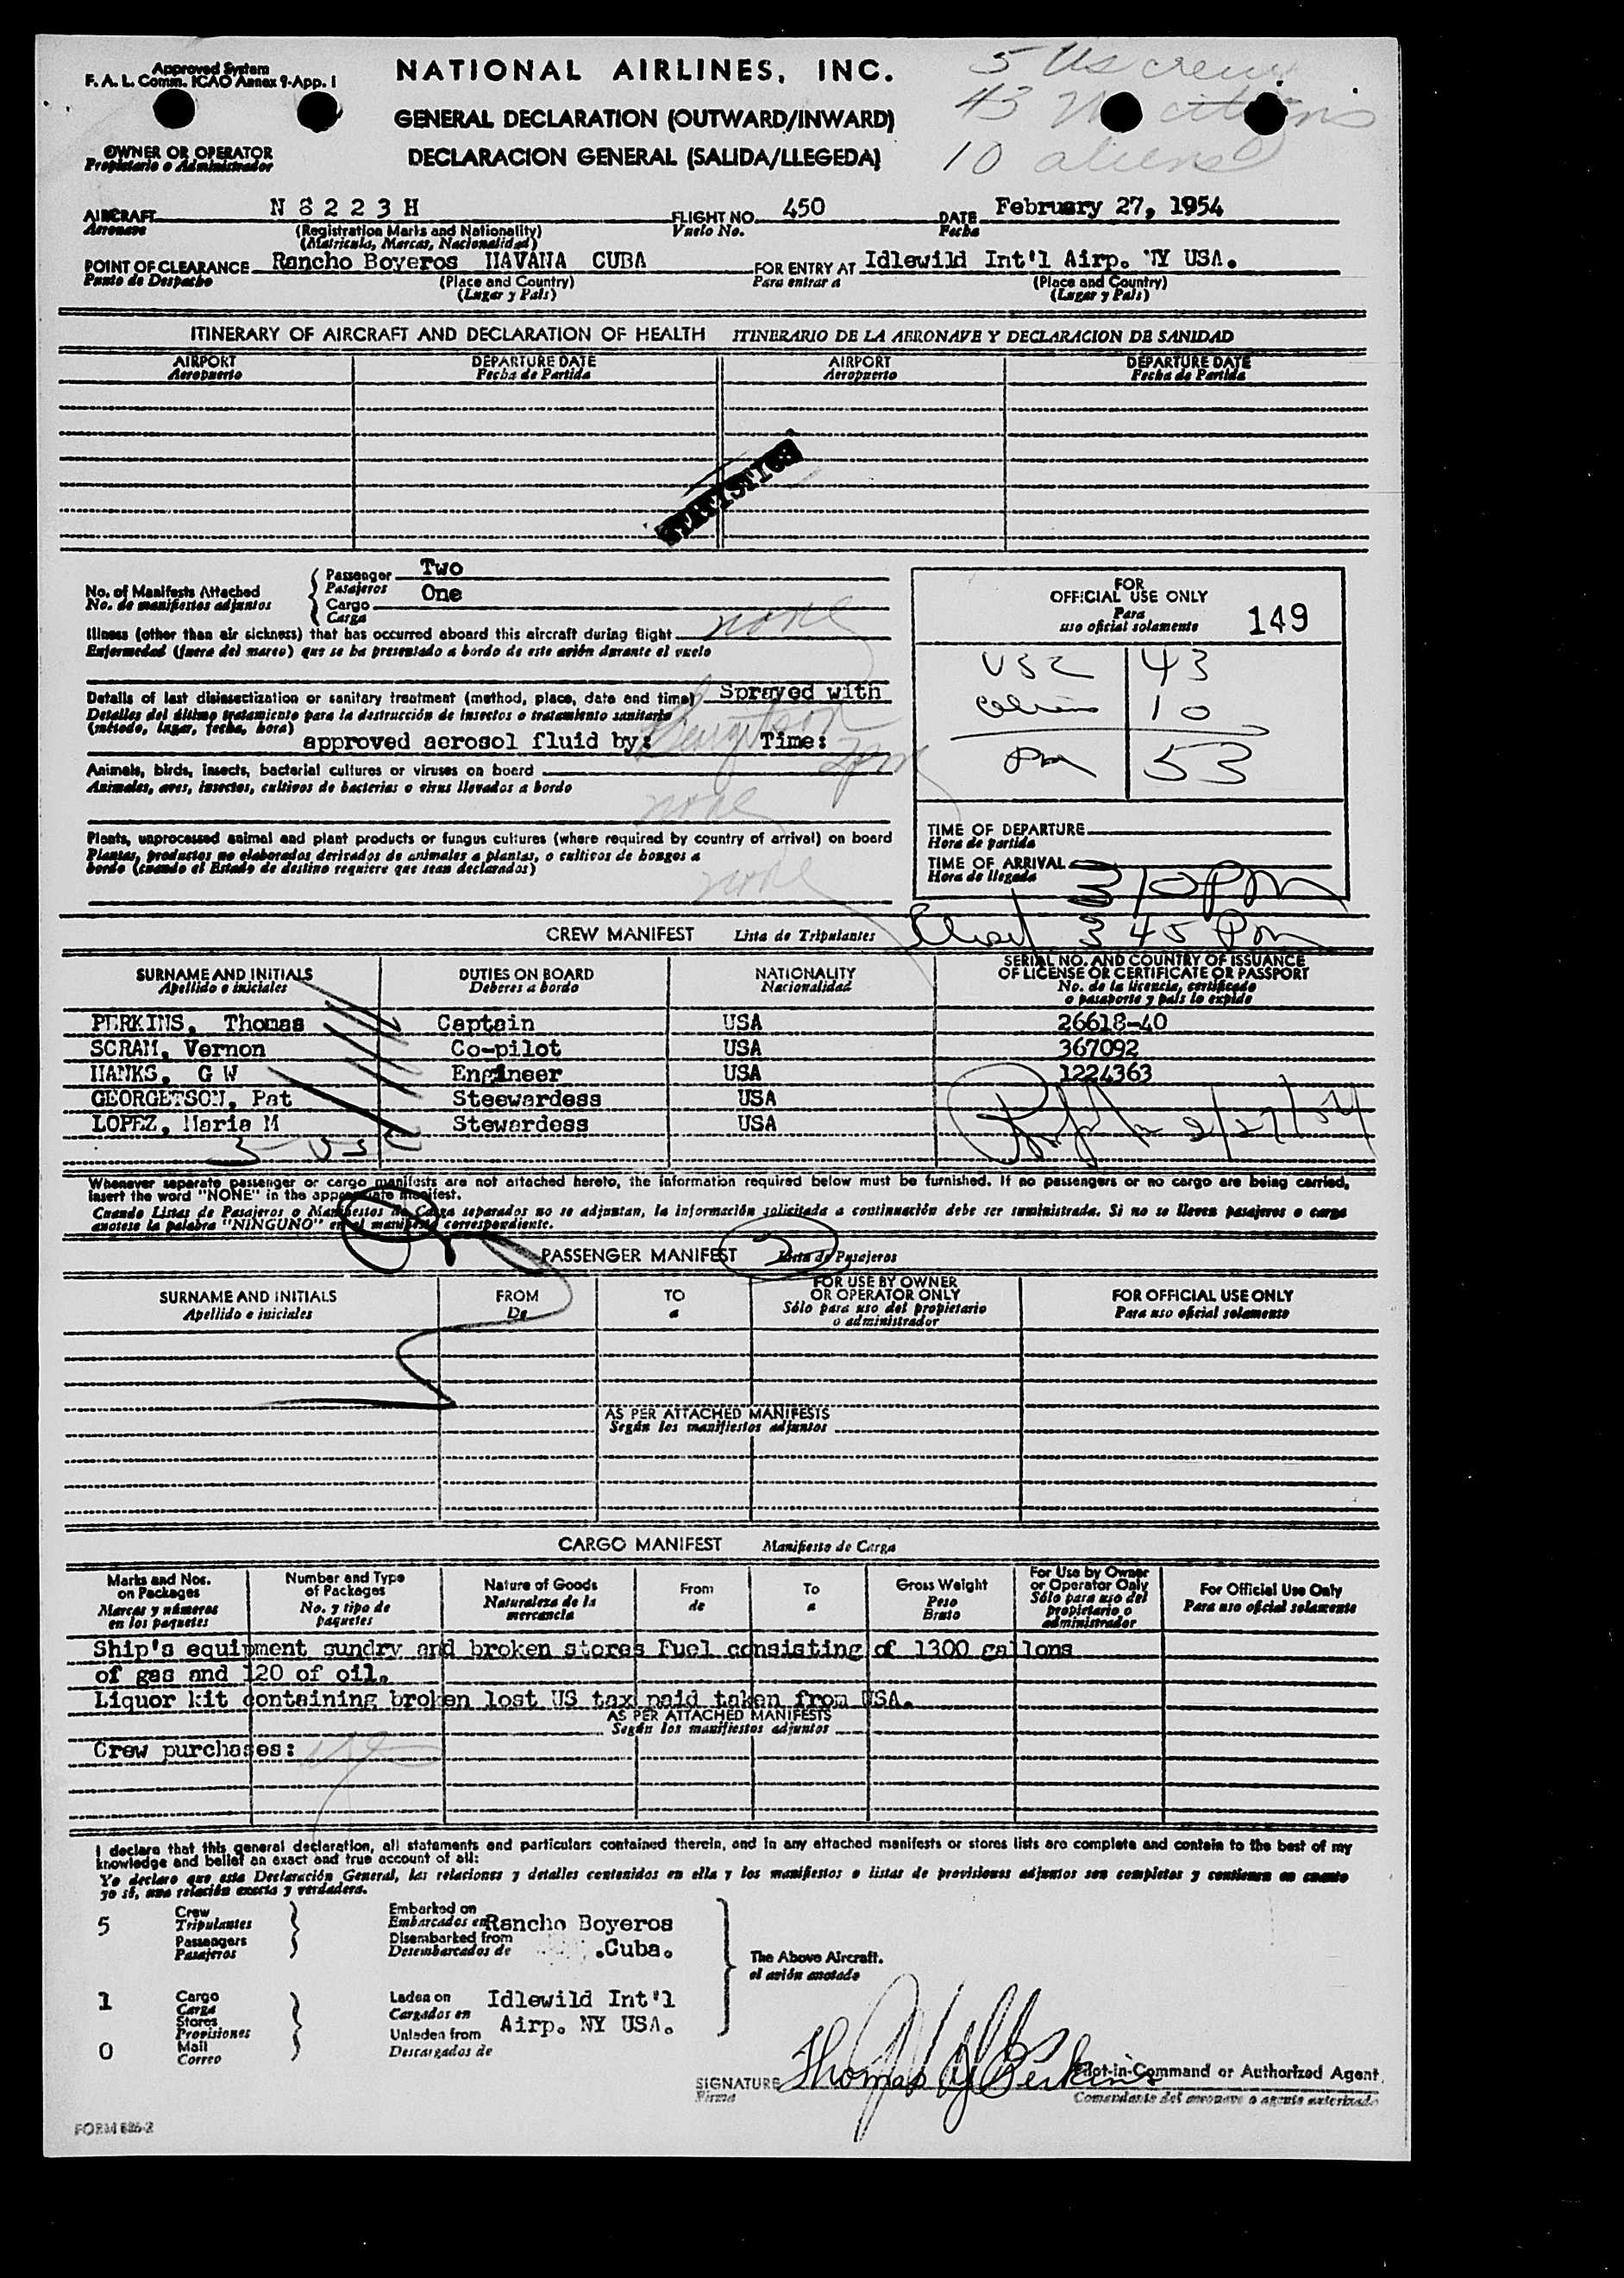 Approved System
F. A. L. Comm. ICAO Annex 9-App. I
NATIONAL AIRLINES, INC.
5 US crew
43
10 aliens
GENERAL DECLARATION (OUTWARD/INWARD)
DECLARACION GENERAL (SALIDA/LLEGEDA)
OWNER OR OPERATOR
Propietario o Administrador
AIRCRAFT N 8 2 2 3 H FLIGHT NO. 450 DATE February 27, 1954
Aeronave (Registration Marks and Nationality) Vuelo No. Fecha
(Matricula, Marcas, Nacionalidad)
POINT OF CLEARANCE Rancho Boyeros HAVANA CUBA FOR ENTRY AT Idlewild Int'l Airp. NY USA.
Punto de Despacho (Place and Country) Para entrar a (Place and Country)
(Lugar y Pais) (Lugar y Pais)
ITINERARY OF AIRCRAFT AND DECLARATION OF HEALTH ITINERARIO DE LA AERONAVE Y DECLARACION DE SANIDAD
AIRPORT DEPARTURE DATE AIRPORT DEPARTURE DATE
Aeropuerto Fecha de Partida Aeropuerto Fecha de Partida
STATISTICS
No. of Manifests Attached
No. de manifiestos adjuntos
Passenger Two
Pasajeros One
Cargo
Carga
Illness (other than air sickness) that has occurred aboard this aircraft during flight none
Enfermedad (fuera del mareo) que se ha presentado a bordo de este avión durante el vuelo
Details of last disinsectization or sanitary treatment (method, place, date and time) Sprayed with
Detalles del último tratamiento para la destrucción de insectos o tratamiento sanitario
(método, lugar, fecha, hora)
approved aerosol fluid by: Georgetson Time: 2pm
Animals, birds, insects, bacterial cultures or viruses on board
Animales, aves, insectos, cultivos de bacterias o virus llevados a bordo
none
Plants, unprocessed animal and plant products or fungus cultures (where required by country of arrival) on board
Plantas, productos no elaborados derivados de animales a plantas, o cultivos de hongos a
bordo (cuando el Estado de destino requiere que sean declarados)
none
FOR
OFFICIAL USE ONLY
Para
uso oficial solamente
149
USC 43
aliens 10
53
TIME OF DEPARTURE
Hora de partida
TIME OF ARRIVAL 3 10 PM
Hora de llegada
3 45 Pm
CREW MANIFEST Lista de Tripulantes
SURNAME AND INITIALS DUTIES ON BOARD NATIONALITY SERIAL NO. AND COUNTRY OF ISSUANCE
OF LICENSE OR CERTIFICATE OR PASSPORT
Apellido e iniciales Deberes a bordo Nacionalidad No. de la licencia, certificado
o pasaporte y país lo expide
PERKINS, Thomas Captain USA 26618-40
SCRAM, Vernon Co-pilot USA 367092
HANKS, G W Engineer USA 1224363
GEORGETSON, Pat Steewardess USA
LOPEZ, Maria M Stewardess USA
2/27/54
5 USC
Whenever separate passenger or cargo manifests are not attached hereto, the information required below must be furnished. If no passengers or no cargo are being carried,
insert the word "NONE" in the appropriate manifest.
Cuando Listas de Pasajeros o Manifiestos de Carga separados no se adjuntan, la información solicitada a continuación debe ser suministrada. Si no se llevan pasajeros o carga
anotese la palabra "NINGUNO" en el manifiesto correspondiente.
PASSENGER MANIFEST 2 Lista de Pasajeros
SURNAME AND INITIALS FROM TO FOR USE BY OWNER
OR OPERATOR ONLY FOR OFFICIAL USE ONLY
Apellido e iniciales De a Sólo para uso del propietario
o administrador Para uso oficial solamente
AS PER ATTACHED MANIFESTS
Según los manifiestos adjuntos
CARGO MANIFEST Manifiesto de Carga
Marks and Nos.
on Packages
Marcas y números
en los paquetes
Number and Type
of Packages
No. y tipo de
paquetes
Nature of Goods
Naturaleza de la
mercancía
From
de
To
a
Gross Weight
Peso
Bruto
For Use by Owner
or Operator Only
Sólo para uso del
propietario o
administrador
For Official Use Only
Para uso oficial solamente
Ship's equipment sundry and broken stores Fuel consisting of 1300 gallons
of gas and 120 of oil.
Liquor kit containing broken lost US tax paid taken from USA.
AS PER ATTACHED MANIFESTS
Según los manifiestos adjuntos
Crew purchases:
I declare that this general declaration, all statements and particulars contained therein, and in any attached manifests or stores lists are complete and contain to the best of my
knowledge and belief an exact and true account of all:
Yo declaro que esta Declaración General, las relaciones y detalles contenidos en ella y los manifiestos o listas de provisiones adjuntos son completos y contienen en cuanto
yo sé, una relación exacta y verdadera.
5 Crew
Tripulantes
Passengers
Pasajeros
Embarked on
Embarcados en Rancho Boyeros
Disembarked from
Desembarcados de .Cuba.
The Above Aircraft.
el avión anotado
1 Cargo
Carga
Stores
Provisiones
0 Mail
Correo
Laden on Idlewild Int'l
Cargados en Airp. NY USA.
Unladen from
Descargados de
SIGNATURE Thomas Perkins Pilot-in-Command or Authorized Agent
Firma Comandante del aeronave o agente autorizado
FORM 886-2